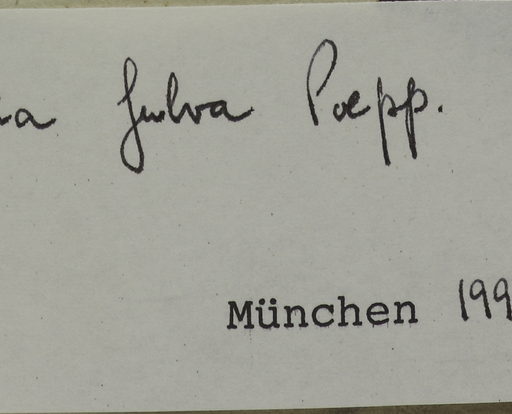 fulva Poepp.
München 199